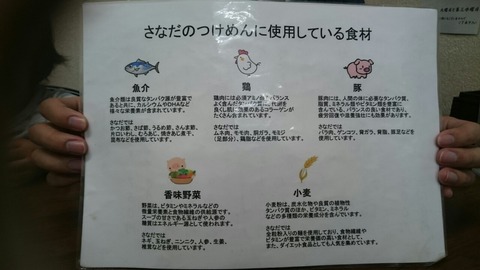 さなだのつけめんに使用している食材
魚介
魚介類は良質なタンパク源が豊富で
あると共に、カルシウムやDHAなど
様々な栄養素が含まれています。
さなだでは
かつお節、さば節、うるめ節、さんま節、
片口いわし、むろあじ、焼きあご煮干、
昆布などを使用しています。
鶏
鶏肉には必須アミノ酸
よく含んだタンパク
肌に
効果のあるコラーゲンが
たくさん含まれています。
さなだでは
ムネ肉、モモ肉、胴ガラ、モミジ
(足部分)、鶏脂などを使用しています。
豚
豚肉には、人間の体に必要なタンパク質、
脂質、ミネラル類やビタミン類を豊富
に含んでいる、バランスの良い食材であり、
疲労回復や滋養強壮にも効果があります。
さなだでは
バラ肉、ゲンコツ、背ガラ、背脂、豚足などを
使用しています。
香味野菜
野菜は、ビタミンやミネラルなどの
微量栄養素と食物繊維の供給源です。
スープの甘さである玉ねぎや人参の
糖質はエネルギー源として使われます。
さなだでは
ネギ、玉ねぎ、ニンニク、人参、生姜、
椎茸などを使用しています。
小麦
小麦粉は、炭水化物や良質の植物性
タンパク質のほか、ビタミン、ミネラル
などの多種類の栄養成分を含んでいます。
さなだでは
全粒粉入りの麺を使用しており、食物繊維や
ビタミンが豊富で栄養価の高い食材として、
また、ダイエット食品としても人気を集めています。